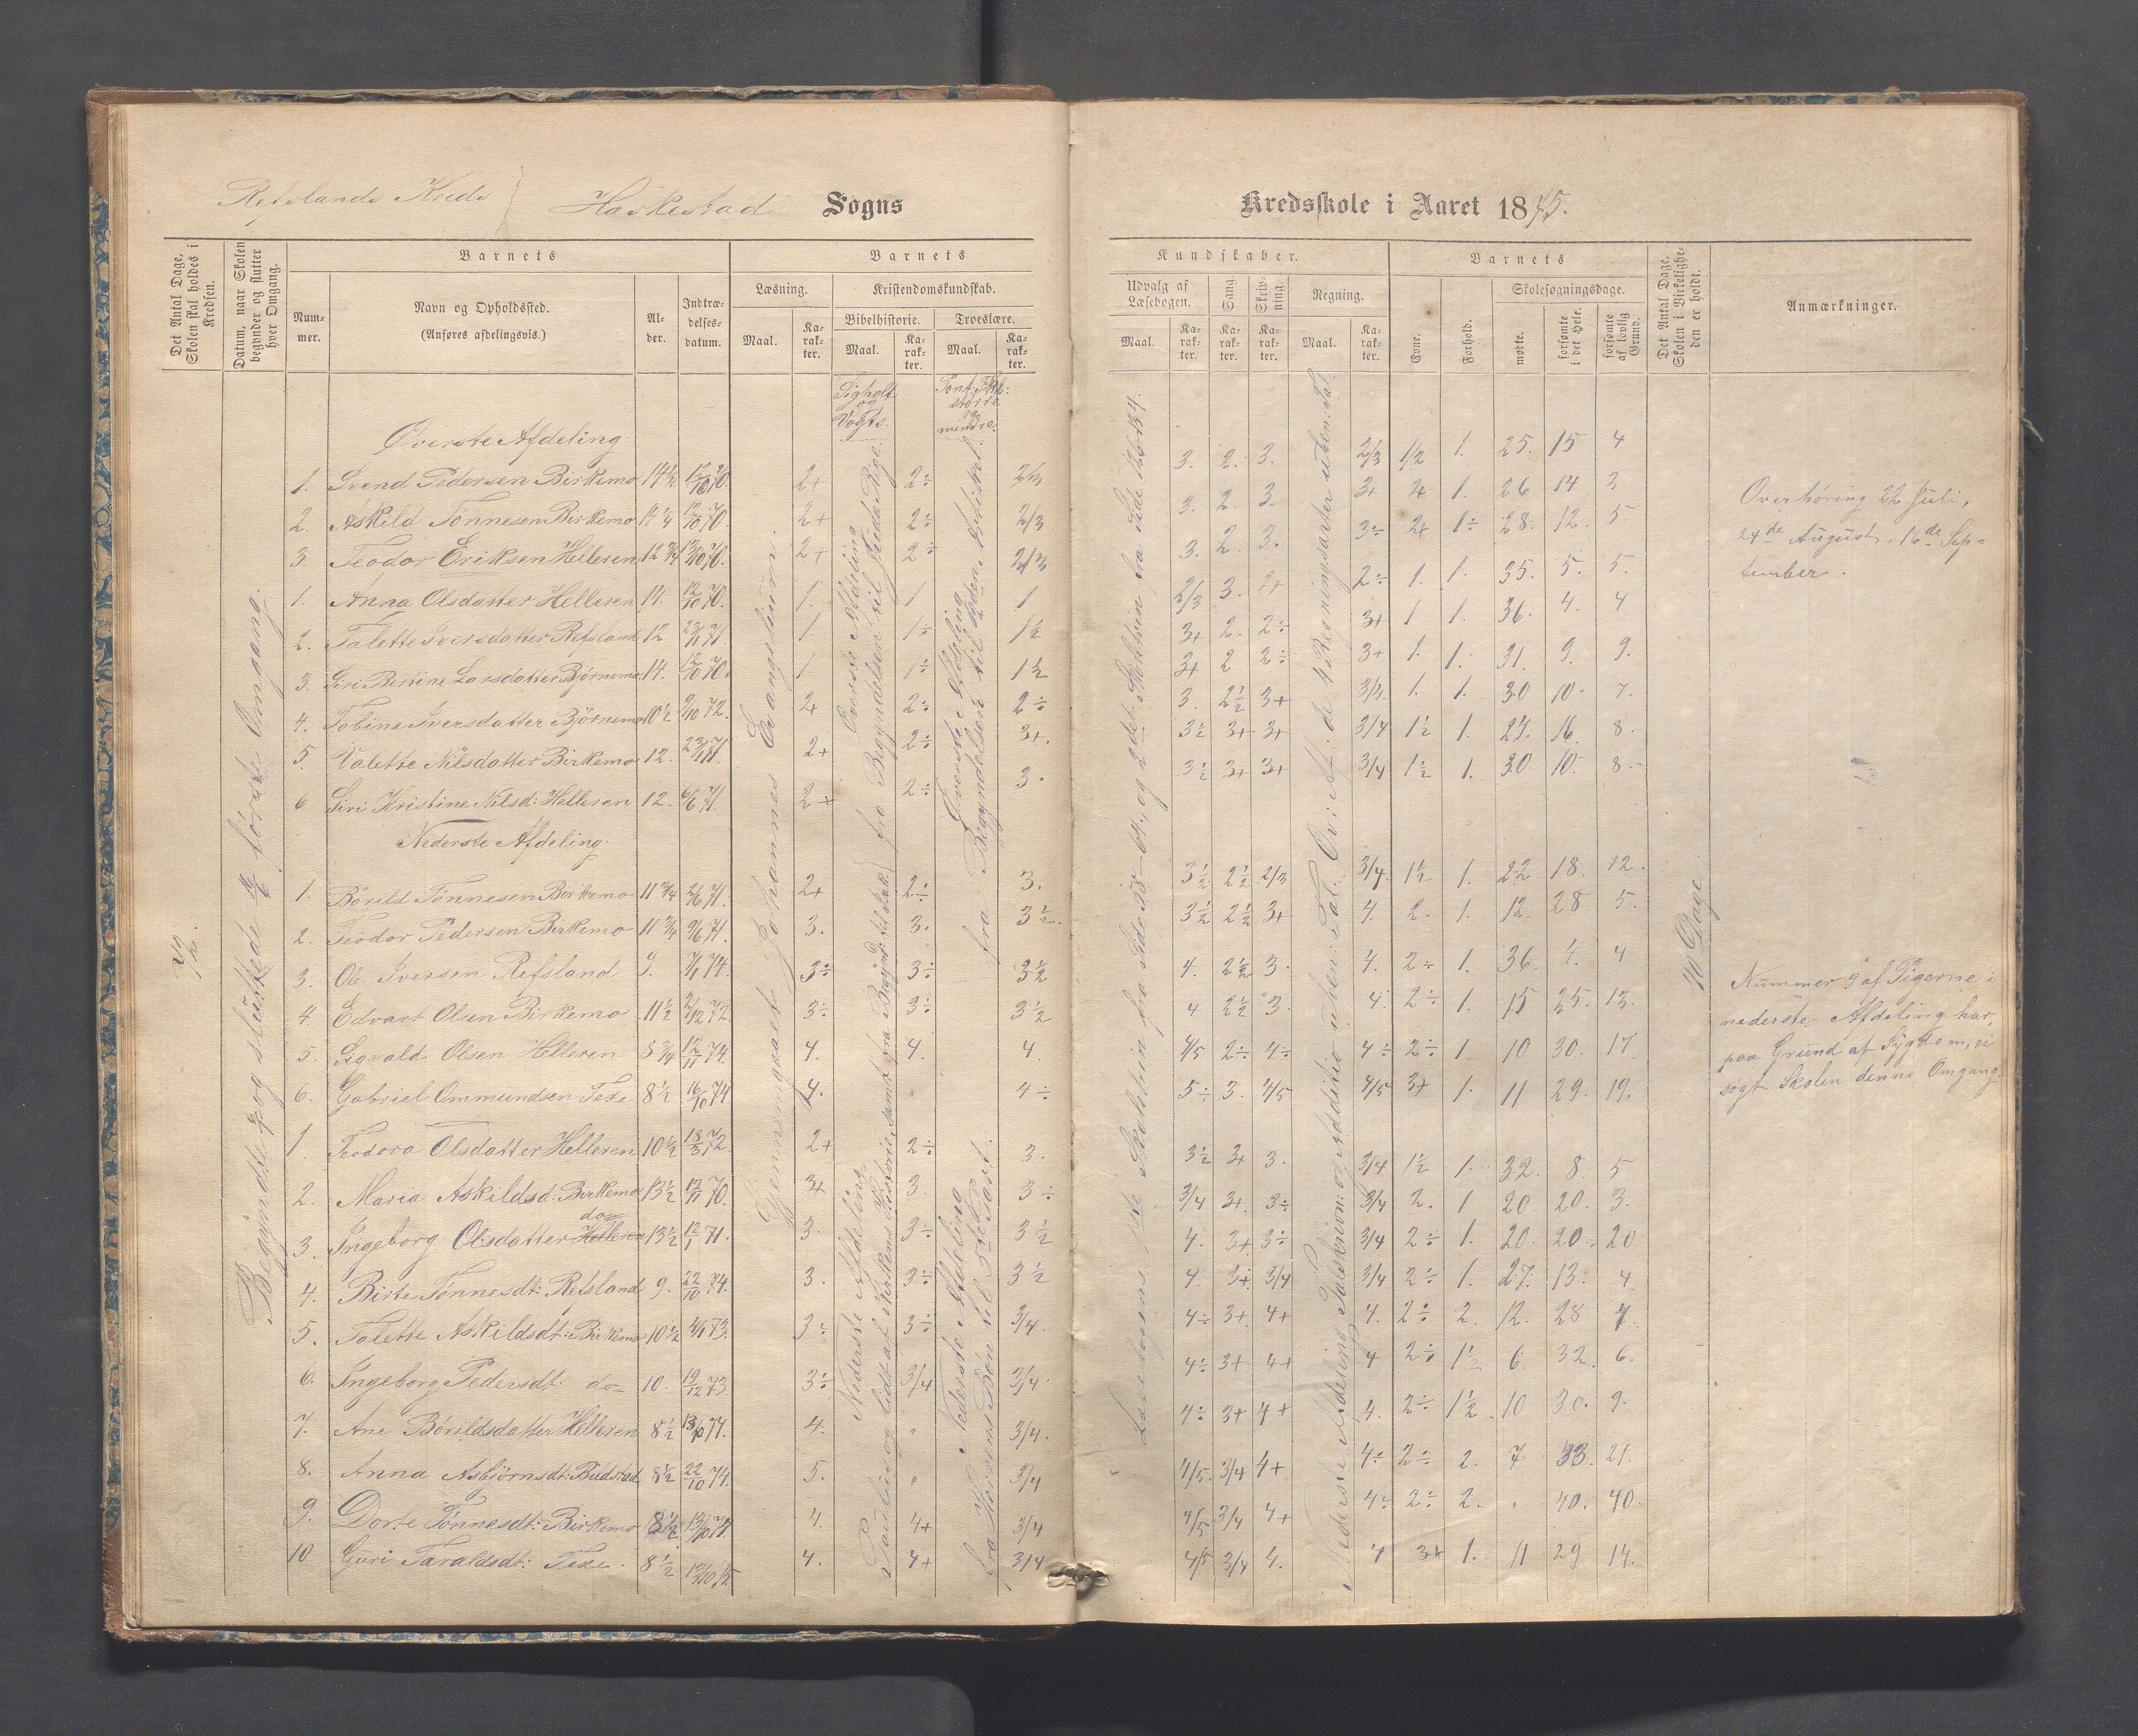 Refslands Kreds Haskestad Sogns
Kredsskole i Aaret 1875.
Det Antal Dage, Skolen skal holdes i Kredsen.
Datum, naar Skolen begynder og slutter hver Omgang.
Barnets
Nummer.
Navn og Opholdssted.
(Anføres afdelingsvis.)
Alder.
Indtrædelsesdatum.
Barnets
Læsning.
Maal.
Karakter.
Kristendomskundskab.
Bibelhistorie.
Maal.
Karakter.
Troeslære.
Maal.
Karakter.
Kundskaber.
Udvalg af Læsebogen.
Maal.
Karakter.
Sang.
Karakter.
Skrivning.
Karakter.
Regning.
Maal.
Karakter.
Barnets
Evne.
Forhold.
Skolesøgningsdage.
mødte.
forsømte i det Hele.
forsømte af lovlig Grund.
Det Antal Dage, Skolen i Virkeligheden er holdt.
Anmærkninger.
og
Vogts
større
og
mindre.
Øverste Afdeling
1. Svend Pedersen Birkemo 14 1/2 12/10 70. 2+ 2÷ 2/3 3. 2. 3. 2/3 1/2 1. 25. 15 4
2. Askild Tønnesen Birkemo 14 1/4 12/10 70. 2+ 2÷ 2/3 3. 2. 3. 3+ 2+ 1. 26 14 3
3. Teodor Eriksen Helleren 12 3/4 12/10 70. 2+ 2÷ 2/3 3. 2. 3. 3÷ 2+ 1÷ 28. 12. 5
1. Anna Olsdatter Helleren 14. 12/10 70. 1. 1 1 2/3 3. 2+ 2÷ 1. 1. 35. 5. 5.
2. Talette Iversdatter Refsland 12. 23/11 71. 1. 1÷ 1 1/2 3+ 2. 2÷ 3+ 1 1. 36. 4. 4
3. Siri Bertine Larsdatter Bjørnemo 14. 12/10 70. 1. 1÷ 1 1/2 3+ 2 2÷ 3+ 1. 1. 31. 9. 9.
4. Tobine Iversdatter Bjørnemo 10 1/2 9/10 72. 2+ 2÷ 2÷ 3. 2 1/2 3+ 3/4. 1. 1. 30 10. 7.
5. Valette Nilsdatter Birkemo 12. 23/11 71. 2+ 2÷ 3+. 3 1/2 3+ 3+ 3/4 1 1/2 1. 24. 16. 8.
6 Siri Kristine Nilsd: Helleren 12. 6/6 71. 2+ 2÷ 3. 3 1/2 3+ 3+ 3/4 1 1/2 1. 30. 10. 8
Nederste Afdeling.
1. Børild Tønnesen Birkemo 11 3/4 2/6 71. 2+ 2÷ 3. 3 1/2 2 1/2 2/3 3/4. 1 1/2 1. 22 18. 12.
2. Teodor Pedersen Birkemo 11 3/4 9/6 71. 3. 3. 3 1/2. 3 1/2 2 1/2 3+ 4. 2. 1. 12. 28 5.
3. Ole Iversen Refsland 9. 7/1 74. 3÷ 3÷ 3 1/2 4. 2 1/2 3. 4. 2÷ 1. 36. 4. 4
4. Edvart Olsen Birkemo 11 1/2 2/12 72. 3÷ 3÷ 3 1/2 4 2 1/2 3. 4. 2÷ 1. 15 25. 13.
5. Sigvald Olsen Helleren 8 3/4 12/11 74. 4. 4. 4. 4/5 2÷ 4÷ 4÷ 2÷ 1. 10 30. 17
6. Gabriel Ommundsen Texe 8 1/2 16/10 74 4. " 4÷ 5÷ 3. 4/5 4/5 3+ 1. 11 29. 19.
1. Teodora Olsdatter Helleren 10 1/2 13/3 72. 2+ 2÷ 3. 3 1/2 3+ 3. 3/4 1 1/2 1. 32. 8. 5
2. Maria Askildsd: Birkemo 13 1/2 12/11 70. 3+ 3. 3÷ 3/4 3+. 3÷ 3/4 2. 1 20 20. 3.
3. Ingeborg Olsdatter Helleren do 13 1/2 12/1 71. 3. 3÷ 3 1/2 4. 3+ 3÷ 3/4 2÷ 1. 20. 20. 20
4. Birte Tønnesdt: Refsland 9. 22/10 74. 3. 3÷ 3 1/2 4. 3+ 3/4 3/4 2÷ 1. 27. 13. 4
5. Talette Askildsdt: Birkemo 10 1/2 4/1 73. 3÷ 3÷ 3/4. 4÷ 3+ 4+ 4. 2÷ 2. 12. 28 4
6. Ingeborg Pedersdt: do 10. 19/12 73. 3÷ 3/4 3/4. 4÷ 3+ 4+ 4 2÷ 1 1/2 6. 32. 6.
7. Ane Børildsdatter Helleren 8 1/2 13/10 74. 4. " 3/4. 4÷ 3+ 4+ 4. 2÷ 1 1/2 10 30. 9.
8. Anna Asbjørnsdt: Budstad 8 1/2 22/10 74. 5. " 3/4 4/5. 3/4 4+ 4÷ 2÷ 2. 7 33. 21.
9. Dorte Tønnesdt: Birkemo 8 1/2 13/10 74. 4. 4+ 3/4 4/5 3/4 4+ 4÷ 2÷ 2. " 40. 40.
10 Guri Taraldsdt: Texe 8 1/2 4. 4+ 3/4 4/5 3/4 4. 4 3+ 1. 11 29 14.
og sluttede første Omgang.
Gjennemgaaet Johannes Evangelium.
Øverste Afdeling
fra Begyndelsen til
Nederste Afdeling
og lidt af Kirkens Historie, samt fra
Øverste Afdeling
fra Begyndelsen til Artikel.
Nederste Afdeling
fra Herrens Bøn til
Læsebogens
fra Side 58-64, og 2det fra Side 126-134.
Ov: Af: de 4 Regningsarter uben: Tal.
Nederste Afdeling Talskrivn: og Additio uben: Tal.
40 Dage
Overhøring 22 Juli,
24de August, 16de Sep-
tember.
Nummer 9 af Pigerne i
nederste Afdeling har,
paa Grund af Sygdom, ei
søgt Skolen denne Omgang.